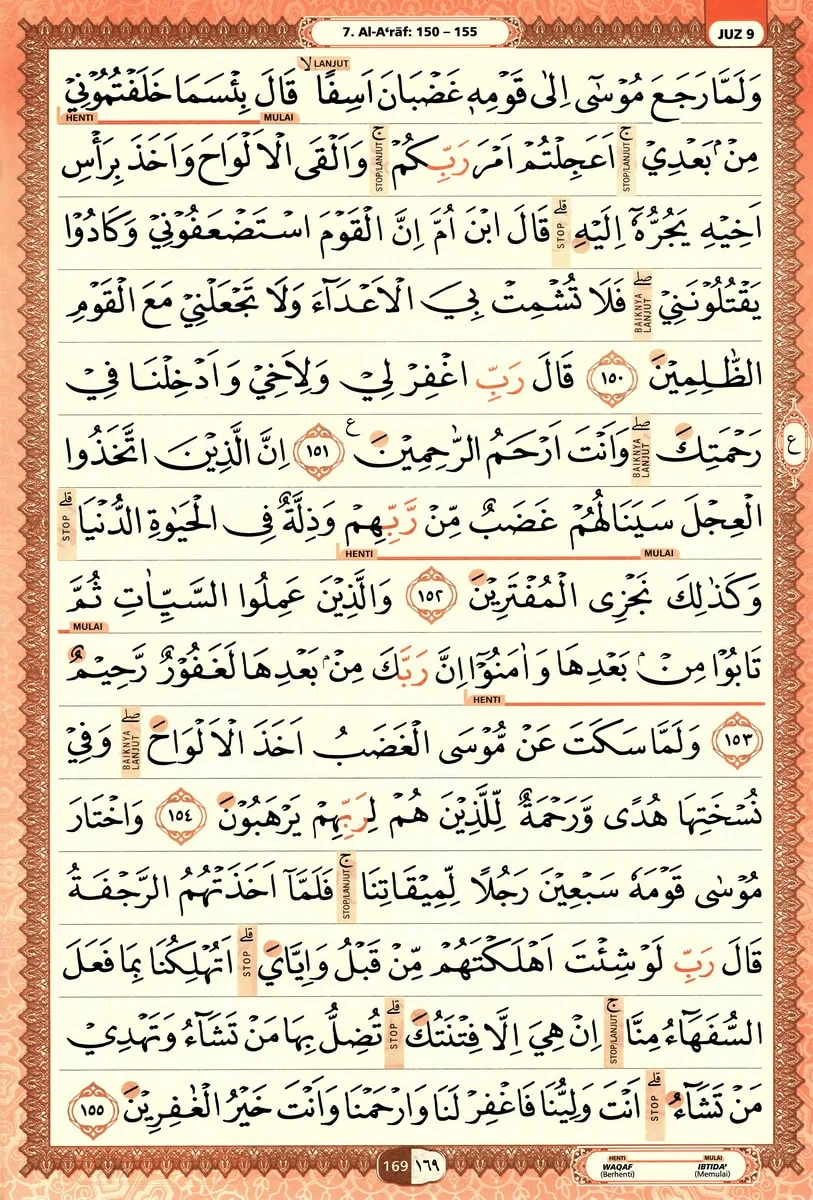 7. Al-A‘rāf: 150 – 155
JUZ 9
وَلَمَّا رَجَعَ مُوْسٰٓى اِلٰى قَوْمِهٖ غَضْبَانَ اَسِفًا ۙ LANJUT قَالَ بِئْسَمَا خَلَفْتُمُوْنِيْ
MULAI HENTI
مِنْۢ بَعْدِيْ ۚ STOP/LANJUT اَعَجِلْتُمْ اَمْرَ رَبِّكُمْ ۚ STOP/LANJUT وَاَلْقَى الْاَلْوَاحَ وَاَخَذَ بِرَأْسِ
اَخِيْهِ يَجُرُّهٗٓ اِلَيْهِ ۗ STOP قَالَ ابْنَ اُمَّ اِنَّ الْقَوْمَ اسْتَضْعَفُوْنِيْ وَكَادُوْا
يَقْتُلُوْنَنِيْ ۖ BAIKNYA LANJUT فَلَا تُشْمِتْ بِيَ الْاَعْدَاۤءَ وَلَا تَجْعَلْنِيْ مَعَ الْقَوْمِ
الظّٰلِمِيْنَ ١٥٠ قَالَ رَبِّ اغْفِرْ لِيْ وَلِاَخِيْ وَاَدْخِلْنَا فِيْ
رَحْمَتِكَ ۖ BAIKNYA LANJUT وَاَنْتَ اَرْحَمُ الرّٰحِمِيْنَ ࣖ ١٥١ اِنَّ الَّذِيْنَ اتَّخَذُوا
ع
الْعِجْلَ سَيَنَالُهُمْ غَضَبٌ مِّنْ رَّبِّهِمْ وَذِلَّةٌ فِى الْحَيٰوةِ الدُّنْيَا ۗ STOP
MULAI HENTI
وَكَذٰلِكَ نَجْزِى الْمُفْتَرِيْنَ ١٥٢ وَالَّذِيْنَ عَمِلُوا السَّيِّاٰتِ ثُمَّ
MULAI
تَابُوْا مِنْۢ بَعْدِهَا وَاٰمَنُوْٓا اِنَّ رَبَّكَ مِنْۢ بَعْدِهَا لَغَفُوْرٌ رَّحِيْمٌ
HENTI
١٥٣ وَلَمَّا سَكَتَ عَنْ مُّوْسَى الْغَضَبُ اَخَذَ الْاَلْوَاحَ ۖ BAIKNYA LANJUT وَفِيْ
نُسْخَتِهَا هُدًى وَّرَحْمَةٌ لِّلَّذِيْنَ هُمْ لِرَبِّهِمْ يَرْهَبُوْنَ ١٥٤ وَاخْتَارَ
مُوْسٰى قَوْمَهٗ سَبْعِيْنَ رَجُلًا لِّمِيْقَاتِنَا ۚ STOP/LANJUT فَلَمَّآ اَخَذَتْهُمُ الرَّجْفَةُ
قَالَ رَبِّ لَوْ شِئْتَ اَهْلَكْتَهُمْ مِّنْ قَبْلُ وَاِيَّايَ ۗ STOP اَتُهْلِكُنَا بِمَا فَعَلَ
السُّفَهَاۤءُ مِنَّا ۚ STOP/LANJUT اِنْ هِيَ اِلَّا فِتْنَتُكَ ۗ STOP تُضِلُّ بِهَا مَنْ تَشَاۤءُ وَتَهْدِيْ
مَنْ تَشَاۤءُ ۗ STOP اَنْتَ وَلِيُّنَا فَاغْفِرْ لَنَا وَارْحَمْنَا وَاَنْتَ خَيْرُ الْغٰفِرِيْنَ ١٥٥
169 ١٦٩
HENTI MULAI
WAQAF IBTIDA'
(Berhenti) (Memulai)